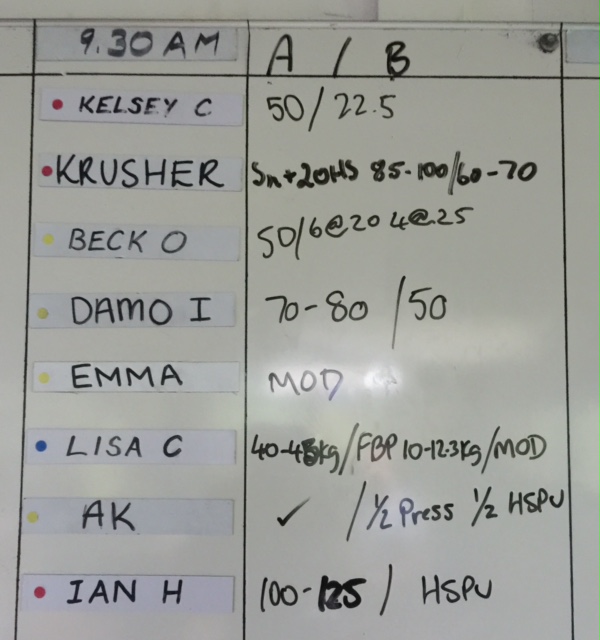 9.30 AM A / B
KELSEY C 50/22.5
KRUSHER Sn+20HS 85-100/60-70
BECK O 50/6@20 4@25
DAMO I 70-80 /50
EMMA MOD
LISA C 40-45kg/FBP 10-12.3kg/MOD
AK ✓ /½ Press ½ HSPU
IAN H 100-125 / HSPU